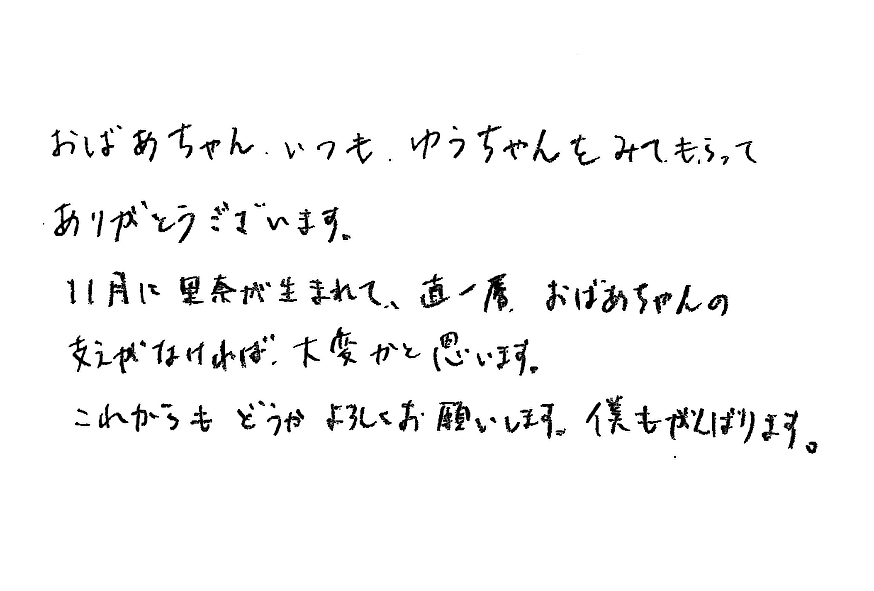 おばあちゃん、いつも、ゆうちゃんをみてもらって
ありがとうございます。
11月に里奈が生まれて、直一層、おばあちゃんの
支えがなければ、大変かと思います。
これからもどうかよろしくお願いします。僕もがんばります。